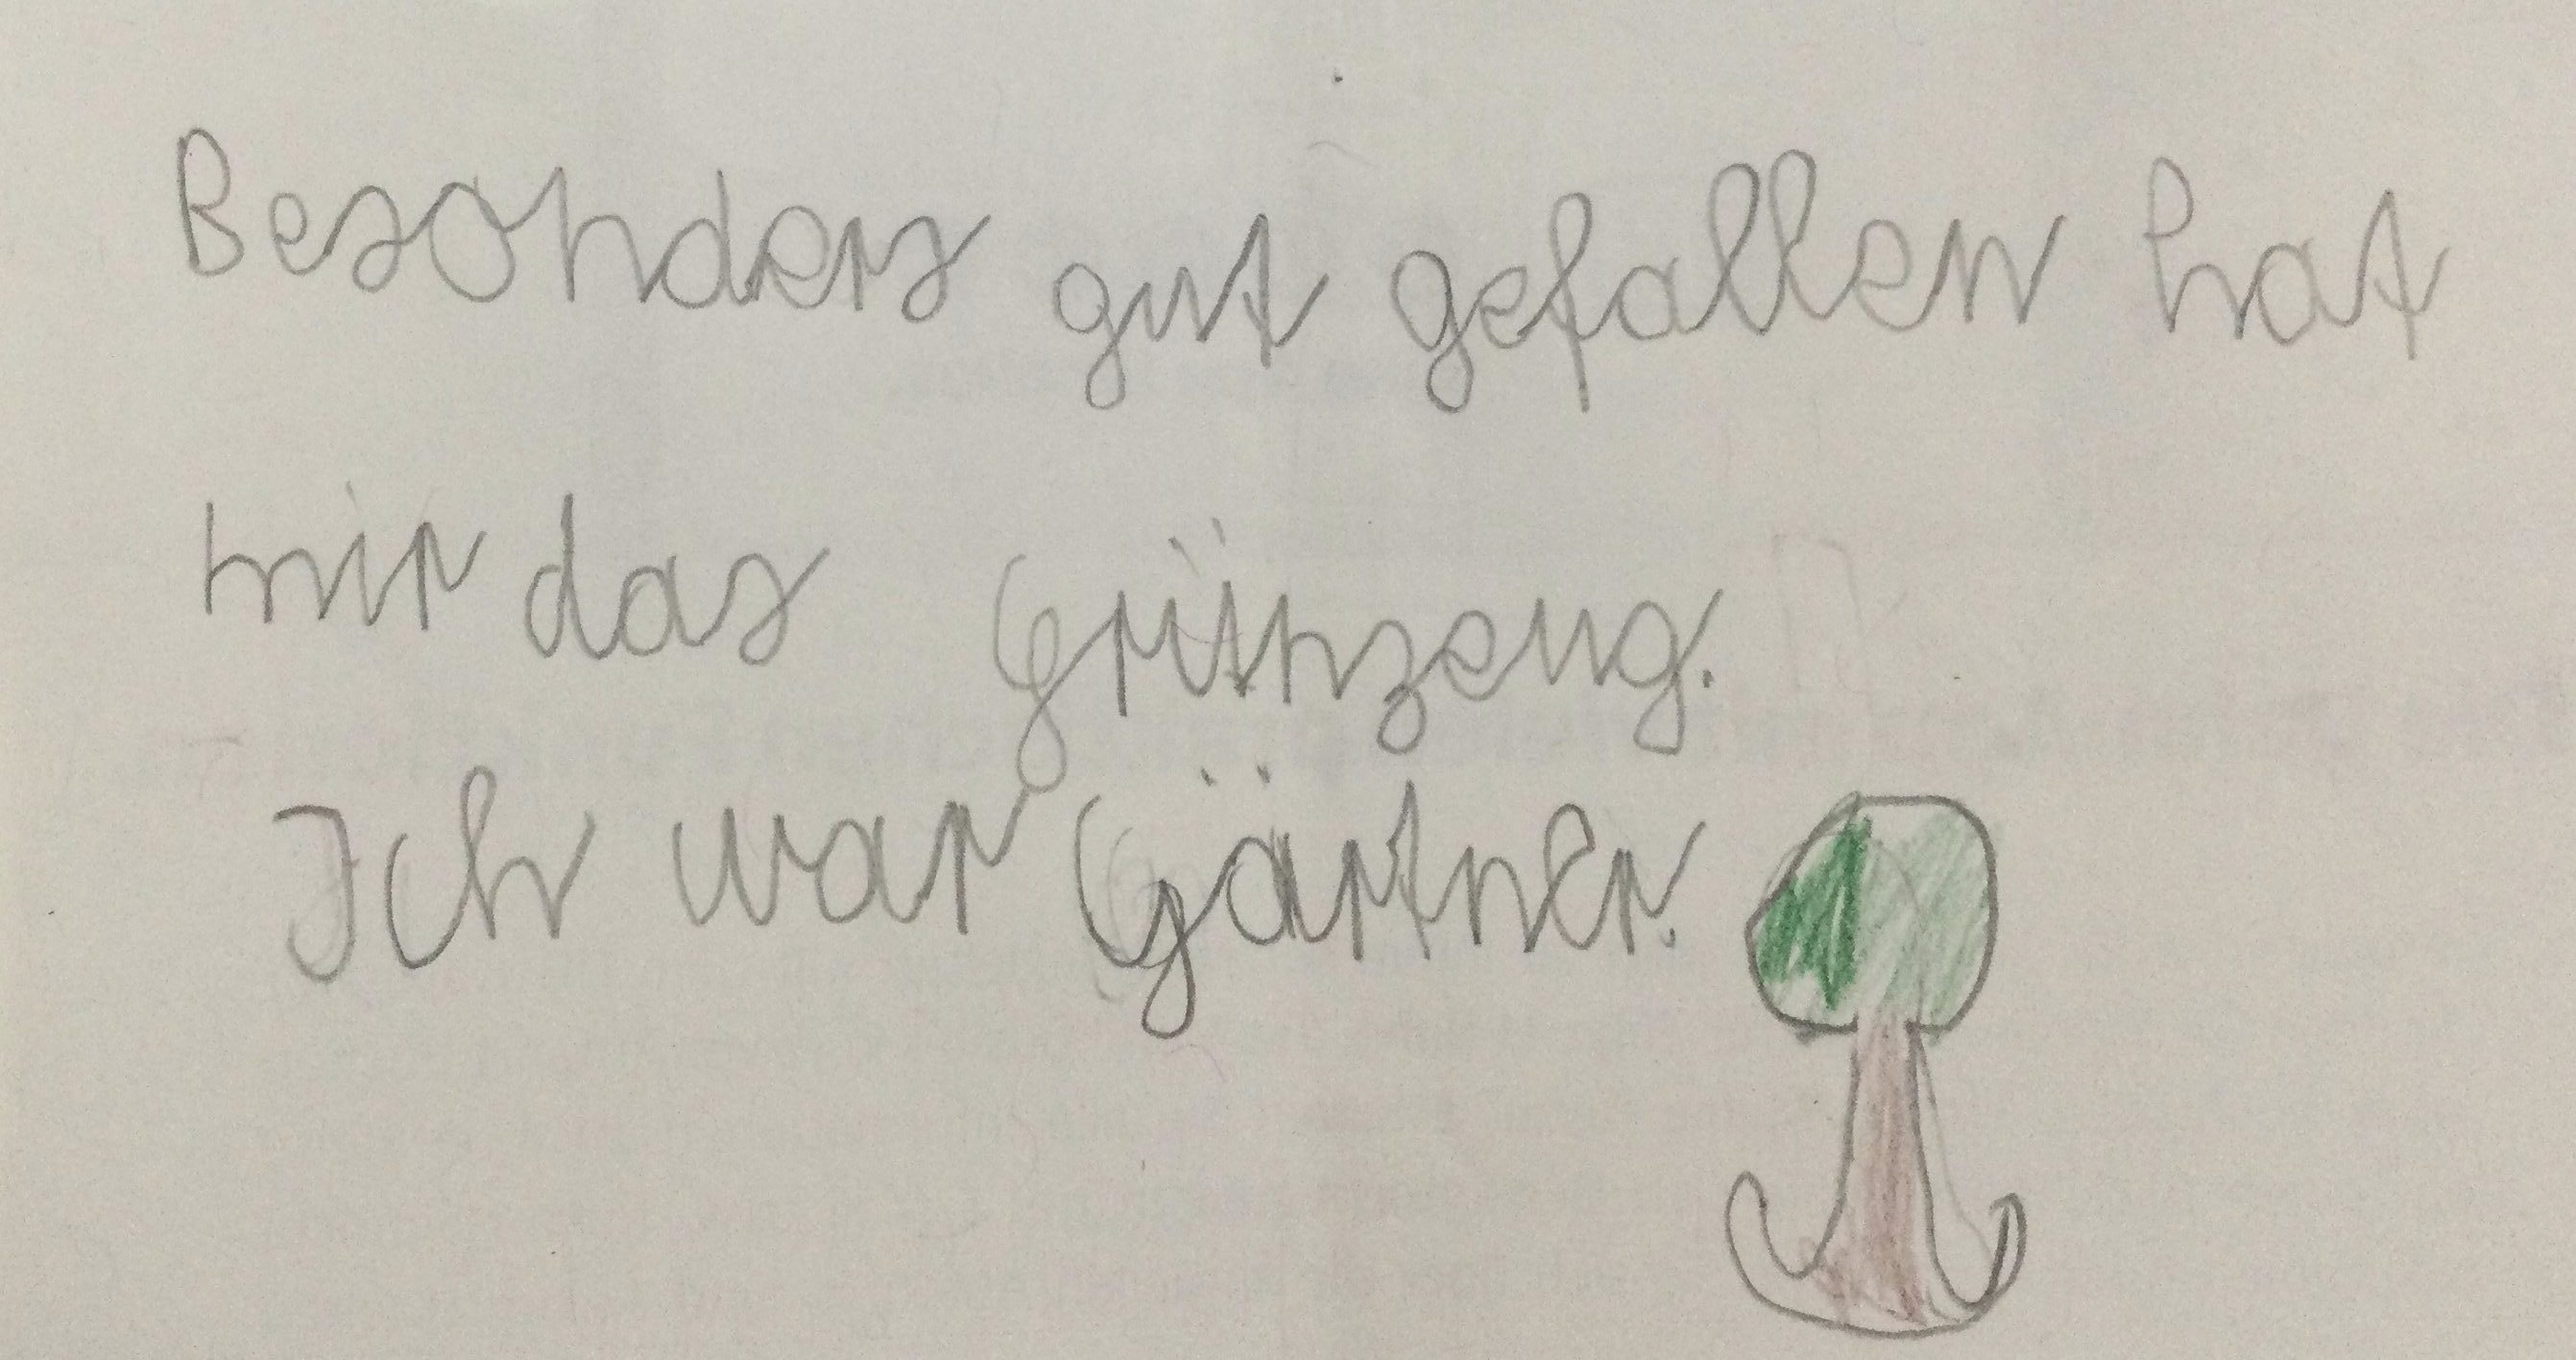 Besonders gut gefallen hat
mir das Grünzeug.
Ich war Gärtner.